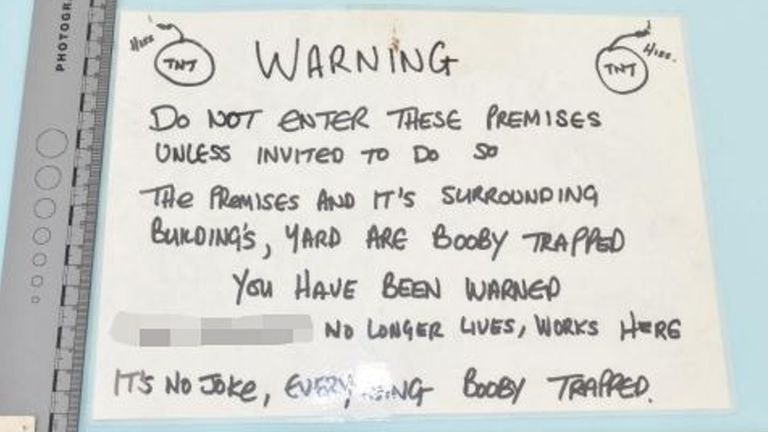 PHOTOGR
Hiss TNT WARNING TNT Hiss.
DO NOT ENTER THESE PREMISES
UNLESS INVITED TO DO SO
THE PREMISES AND IT'S SURROUNDING
BUILDING'S, YARD ARE BOOBY TRAPPED
YOU HAVE BEEN WARNED
NO LONGER LIVES, WORKS HERE
IT'S NO JOKE, BOOBY TRAPPED.